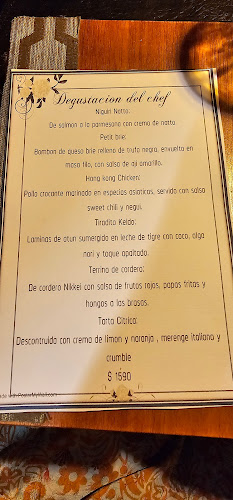 Degustacion del chef
Niguiri Natto:
De salmon a la parmesana con crema de natto.
Petit brie:
Bombon de queso brie relleno de trufa negra, envuelto en
masa filo, con salsa de aji amarillo.
Hong kong Chicken:
Pollo crocante marinado en especias asiaticas, servido con salsa
sweet chili y negui.
Tiradito Keido:
Laminas de atun sumergido en leche de tigre con coco, alga
nori y toque apaltado.
Terrina de cordero:
De cordero Nikkei con salsa de frutos rojos, papas fritas y
hongos a las brasas.
Tarta Citrica:
Descontruida con crema de limon y naranja , merenge italiano y
crumble
$ 1590
PosterMyWall.com